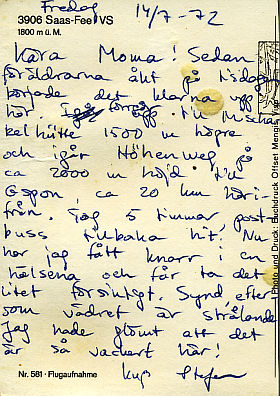 Fredag 14/7-72
3906 Saas-Fee/VS
1800 m ü. M.
Kära Moma! Sedan
föräldrarna åkt på tisdag
började det klarna upp
här. förrgår till Mischa
belhütte 1500 m högre
och igår Höhenweg på
ca 2000 m höjd till
Gspon, ca 20 km häri-
från. Tog 5 timmar post-
buss tillbaka hit! Nu
har jag fått knarr i en
hälsena och får ta det
litet försiktigt. Synd, efter
som vädret är strålande
Jag hade glömt att det
är så vackert här!
Kyss Stefan
Nr. 581 · Flugaufnahme
Photo und Druck: Buchdruck Offset Mengis